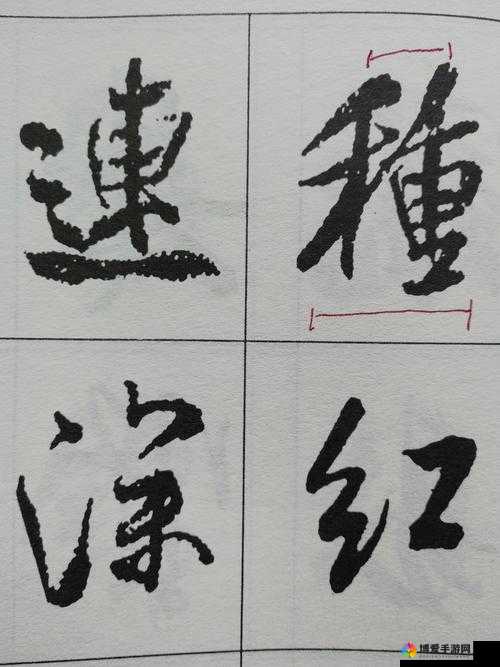 種
红
連
深
博爱手游网